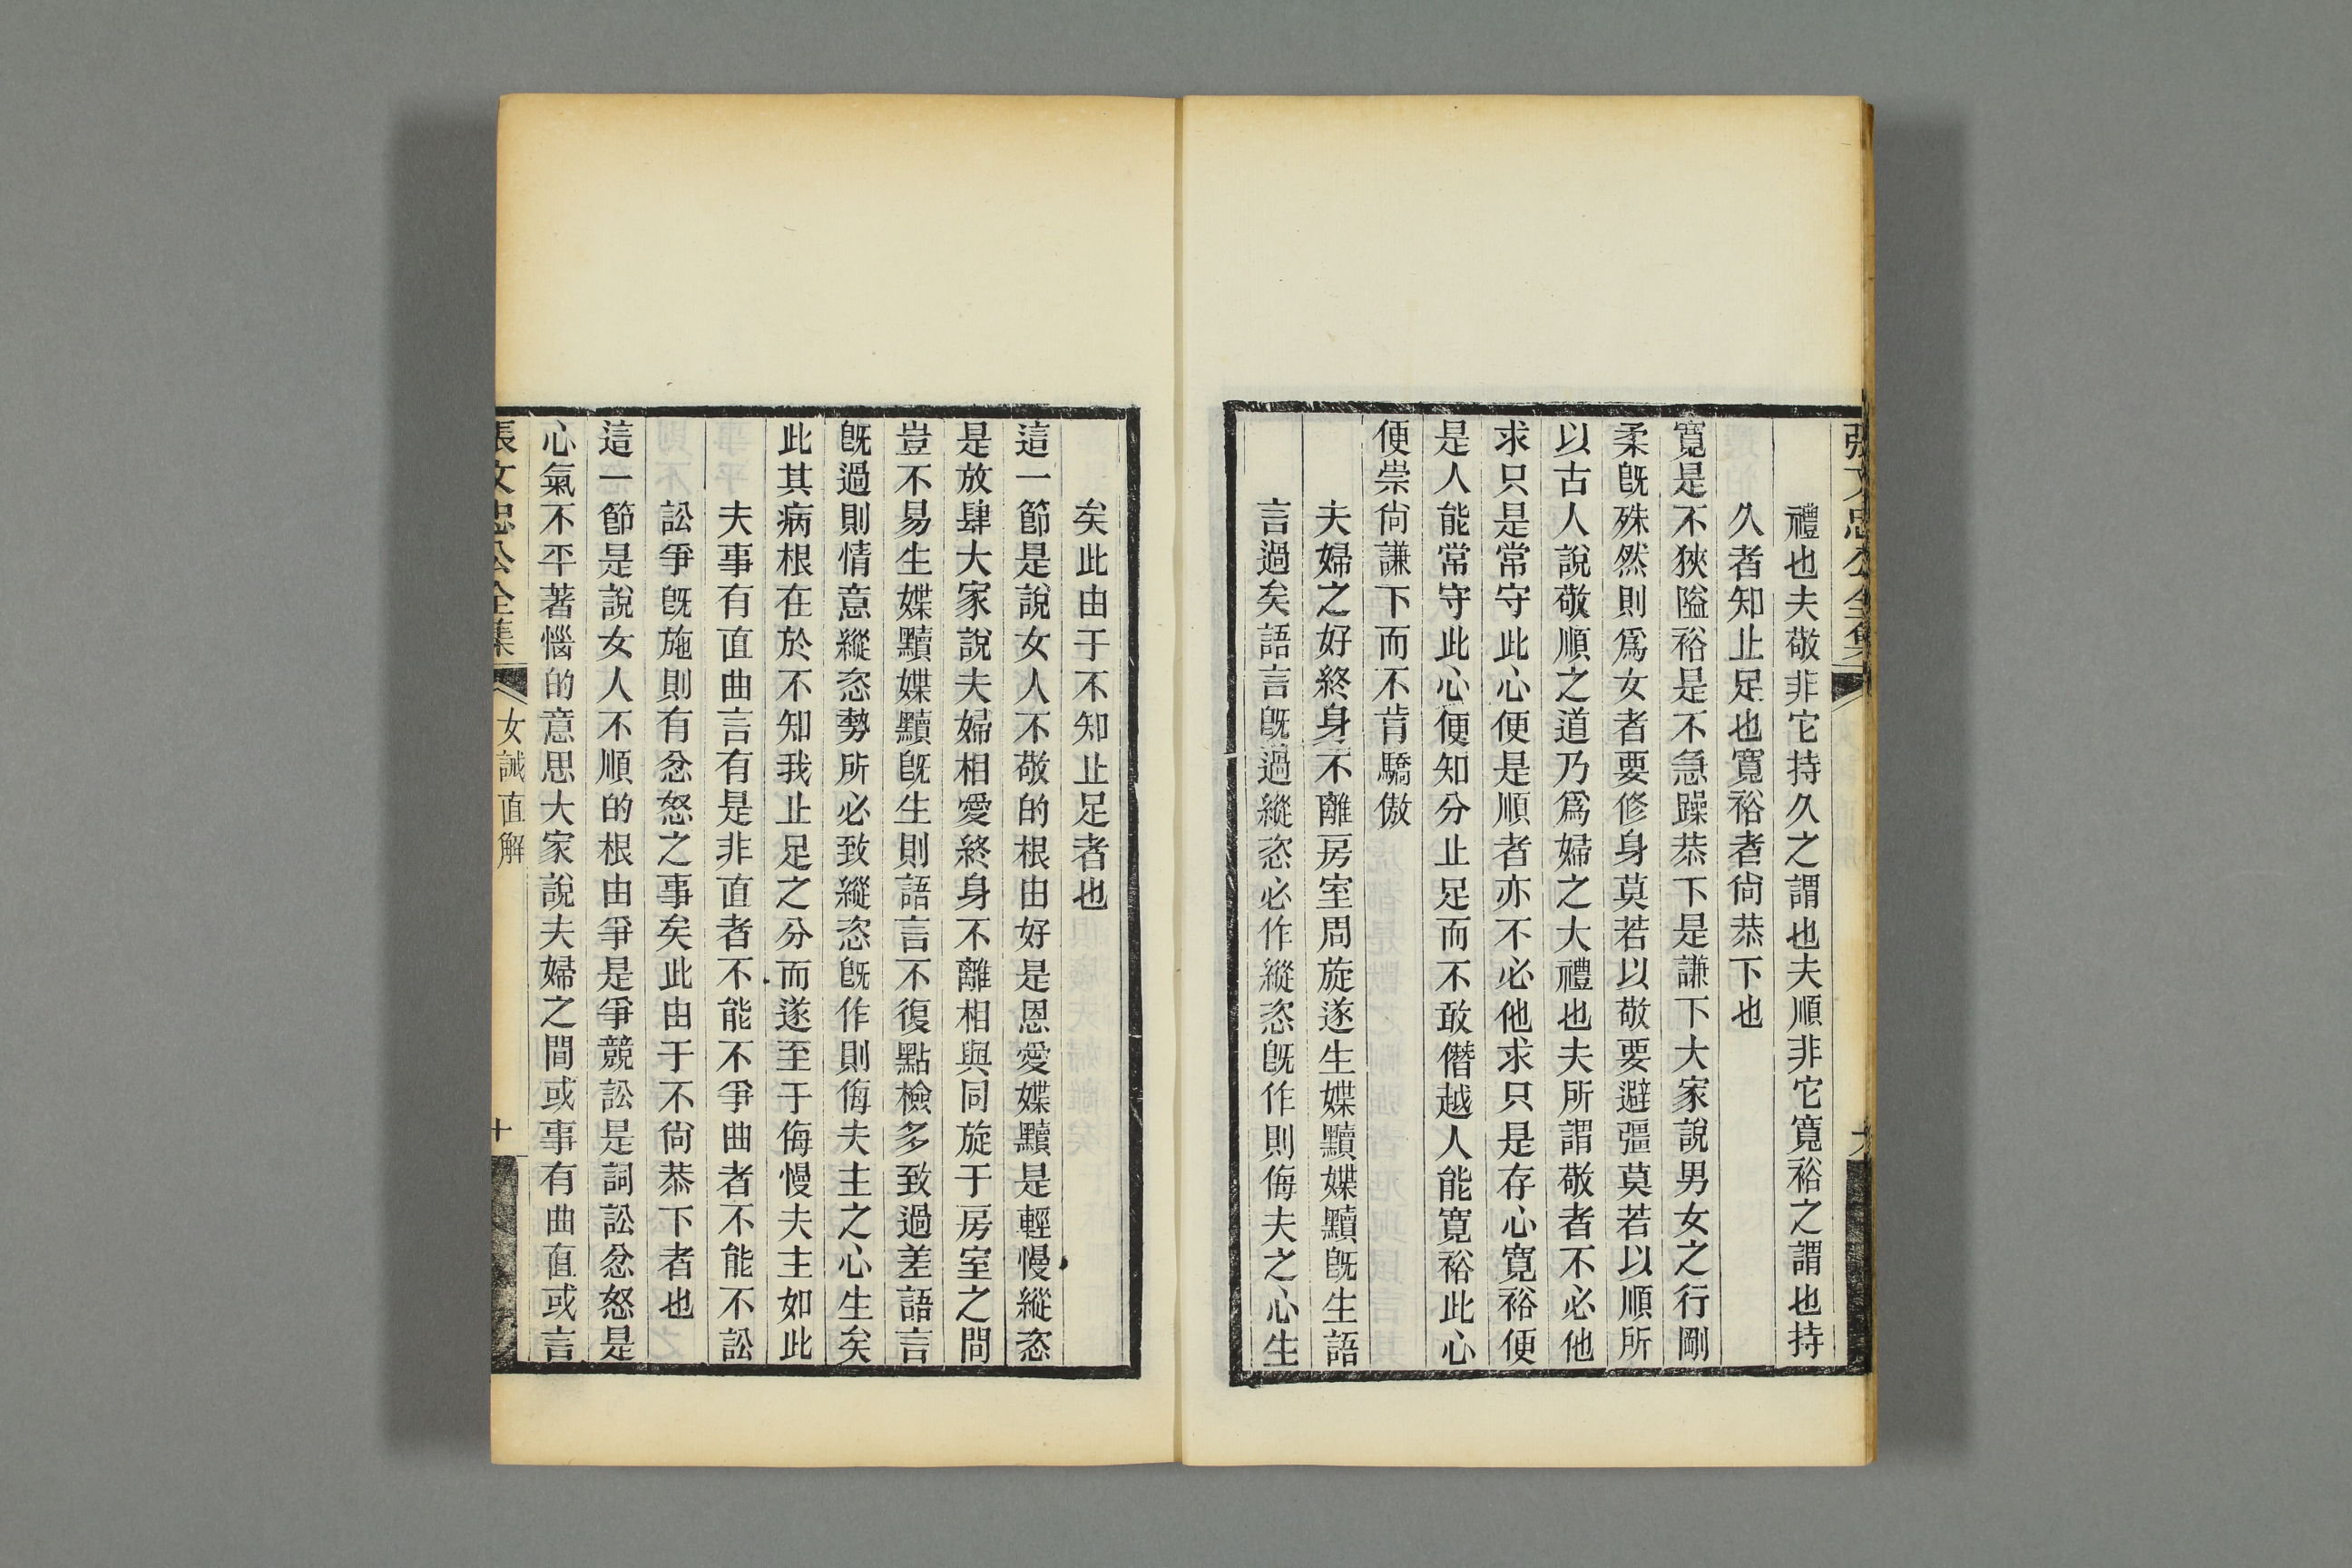 張文忠公全集
禮也夫敬非它持久之謂也夫順非它寬裕之謂也持
久者知止足也寬裕者尙恭下也
寬是不狹隘裕是不急躁恭下是謙下大家說男女之行剛
柔旣殊然則爲女者要修身莫若以敬要避彊莫若以順所
以古人說敬順之道乃爲婦之大禮也夫所謂敬者不必他
求只是常守此心便是順者亦不必他求只是存心寬裕便
是人能常守此心便知分止足而不敢僭越人能寬裕此心
便崇尙謙下而不肯驕傲
夫婦之好終身不離房室周旋遂生媟黷媟黷旣生語
言過矣語言旣過縱恣必作縱恣旣作則侮夫之心生
矣此由于不知止足者也
這一節是說女人不敬的根由好是恩愛媟黷是輕慢縱恣
是放肆大家說夫婦相愛終身不離相與同旋于房室之間
豈不易生媟黷媟黷旣生則語言不復點檢多致過差語言
旣過則情意縱恣勢所必致縱恣旣作則侮夫主之心生矣
此其病根在於不知我止足之分而遂至于侮慢夫主如此
夫事有直曲言有是非直者不能不爭曲者不能不訟
訟爭旣施則有忿怒之事矣此由于不尙恭下者也
這一節是說女人不順的根由爭是爭競訟是詞訟忿怒是
心氣不平著惱的意思大家說夫婦之間或事有曲直或言
張文忠公全集 女誡直解 十